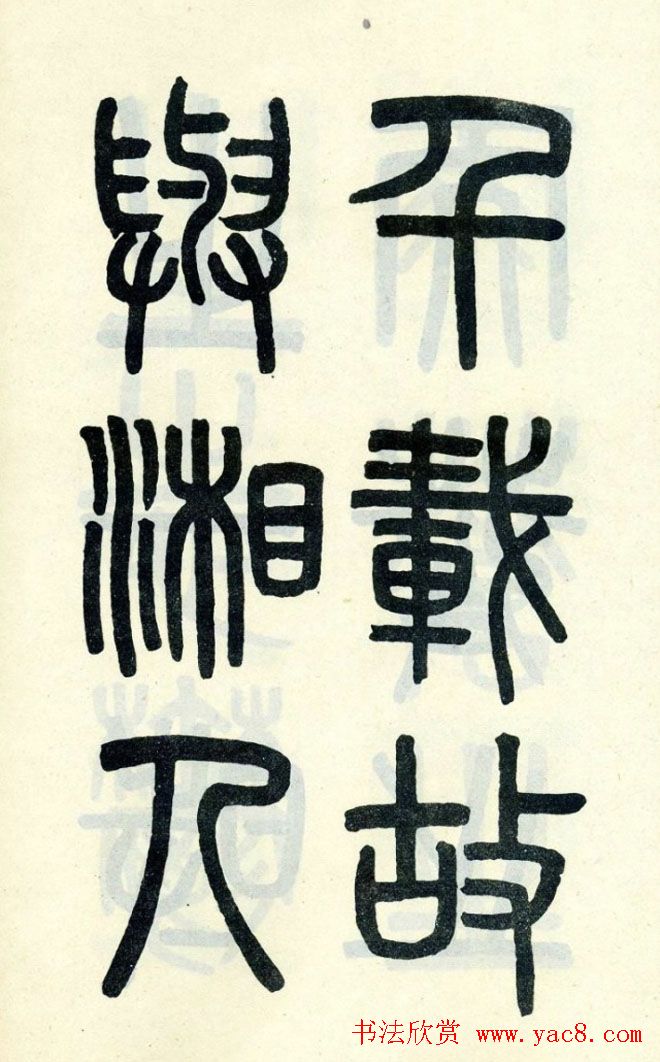 千載故
與湘人
书法欣赏 www.yac8.com